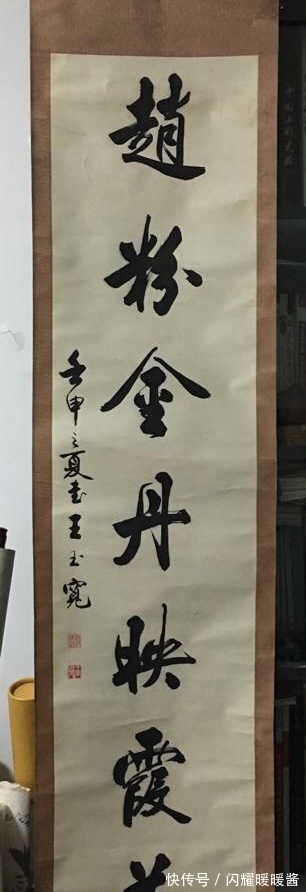 趙粉金丹映霞
壬申之夏書王玉寬
快传号/闪耀暖暖酱